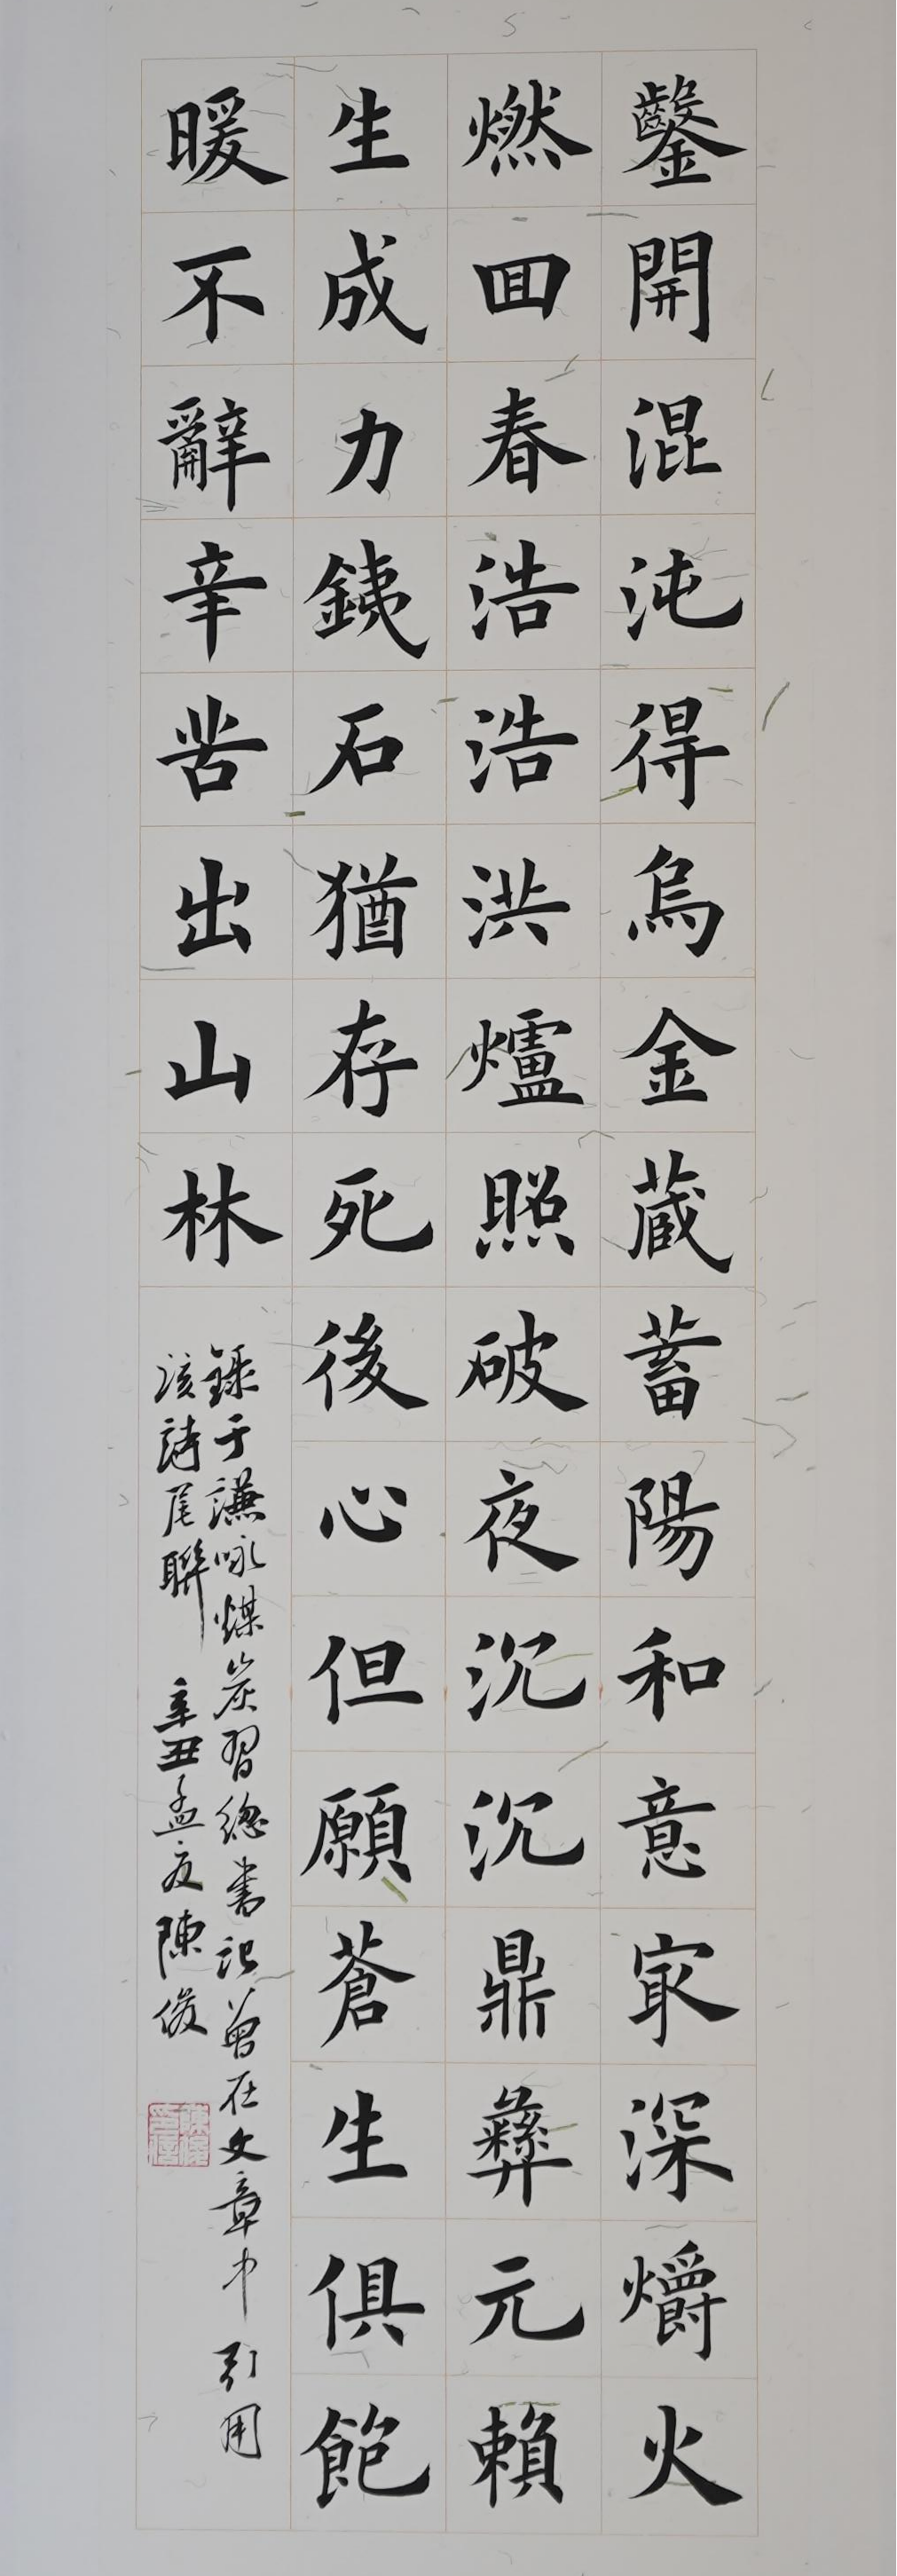 鑿開混沌得烏金蔵蓄陽和意冣深爝火
燃回春浩浩洪爐照破夜沉沉鼎彝元賴
生成力銕石猶存死後心但願蒼生俱飽
暖不辭辛苦出山林
錄于謙咏煤炭習總書記曾在文章中引用
該詩尾聯 辛丑孟夏陳俊